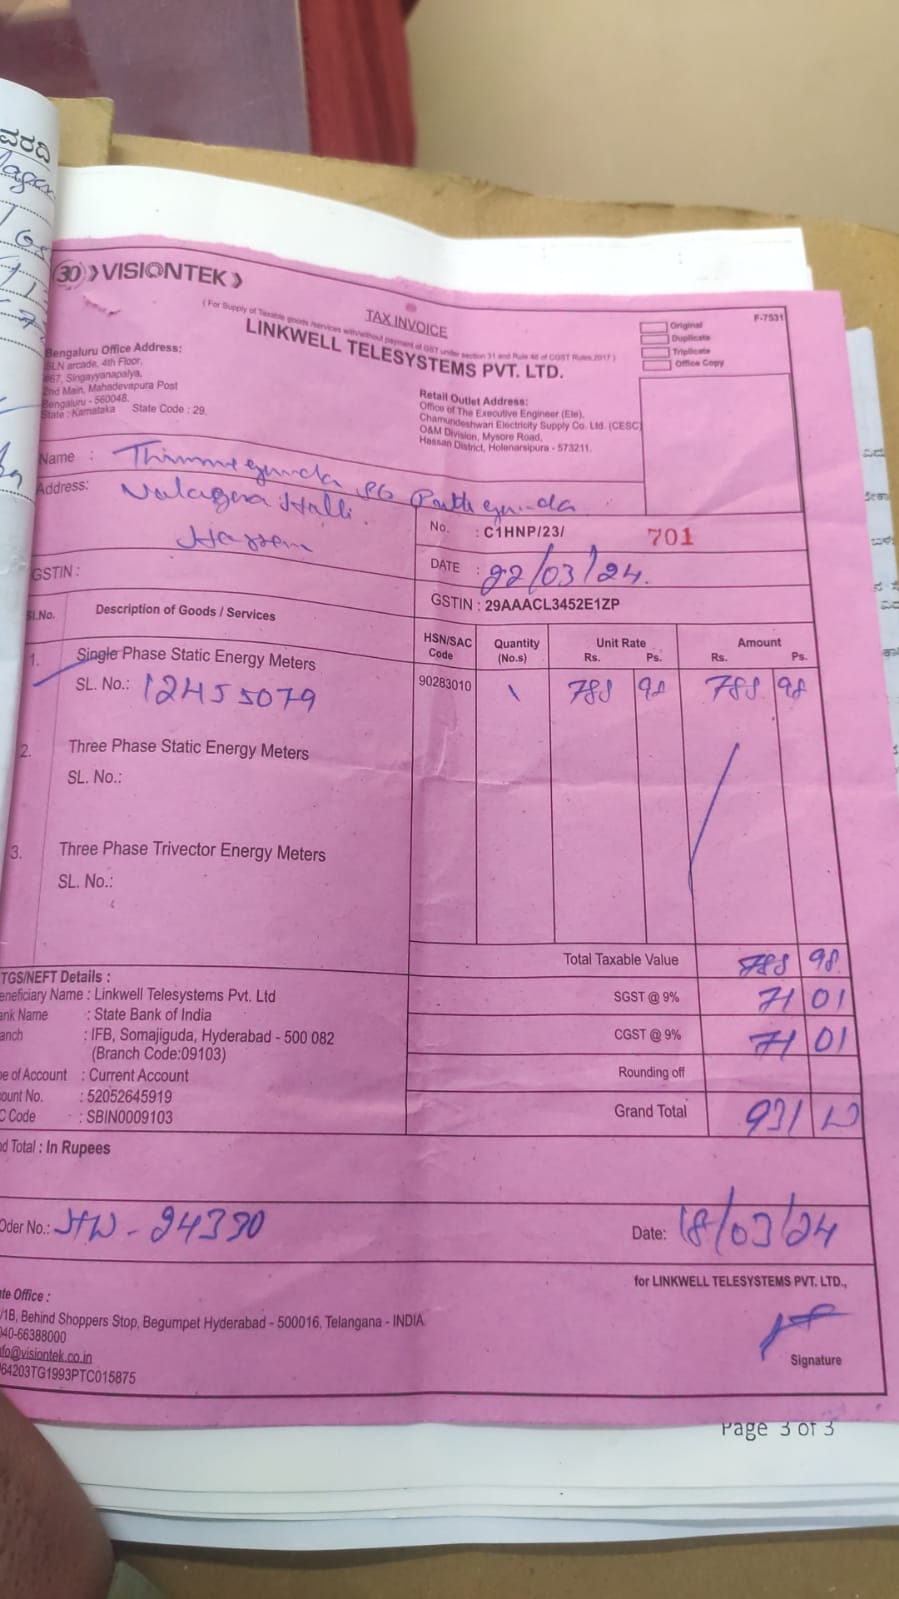 ವರದಿ
30 VISIONTEK
TAX INVOICE
( For Supply of Taxable goods /services with/without payment of GST under section 31 and Rule 48 of CGST Rules,2017 )
LINKWELL TELESYSTEMS PVT. LTD.
F-7531
Original
Duplicate
Triplicate
Office Copy
Bengaluru Office Address:
SLN arcade, 4th Floor,
#67, Singayyanapalya,
2nd Main, Mahadevapura Post
Bengaluru - 560048.
State : Karnataka State Code : 29.
Retail Outlet Address:
Office of The Executive Engineer (Ele),
Chamundeshwari Electricity Supply Co. Ltd. (CESC)
O&M Division, Mysore Road,
Hassan District, Holenarsipura - 573211.
Name : Thimmegowda
Address:
Halli.
Hassan
No. : C1HNP/23/ 701
DATE : 22/03/24.
GSTIN :
GSTIN : 29AAACL3452E1ZP
Sl.No. Description of Goods / Services HSN/SAC Code Quantity (No.s) Unit Rate Rs. Ps. Amount Rs. Ps.
1. Single Phase Static Energy Meters
SL. No.: 12455079 90283010 1 788 98 788 98
2. Three Phase Static Energy Meters
SL. No.:
3. Three Phase Trivector Energy Meters
SL. No.:
Total Taxable Value 788 98
SGST @ 9% 71 01
CGST @ 9% 71 01
Rounding off
Grand Total 931 00
TGS/NEFT Details :
eneficiary Name : Linkwell Telesystems Pvt. Ltd
ank Name : State Bank of India
anch : IFB, Somajiguda, Hyderabad - 500 082
(Branch Code:09103)
pe of Account : Current Account
ount No. : 52052645919
C Code : SBIN0009103
nd Total : In Rupees
Oder No.: HW - 24330
Date: 18/03/24
for LINKWELL TELESYSTEMS PVT. LTD.,
Signature
te Office :
/1B, Behind Shoppers Stop, Begumpet Hyderabad - 500016. Telangana - INDIA
040-66388000
nfo@visiontek.co.in
64203TG1993PTC015875
Page 3 of 3